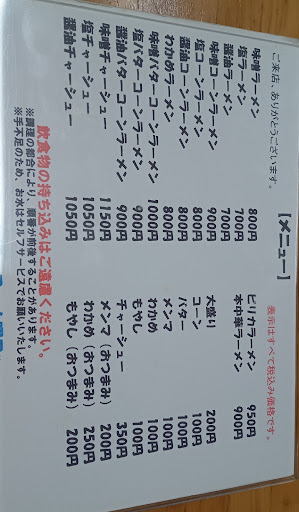 ご来店、ありがとうございます。
【メニュー】
表示はすべて税込み価格です。
味噌ラーメン 800円
塩ラーメン 700円
醤油ラーメン 700円
味噌コーンラーメン 900円
塩コーンラーメン 800円
醤油コーンラーメン 800円
わかめラーメン 800円
味噌バターコーンラーメン 1000円
塩バターコーンラーメン 900円
醤油バターコーンラーメン 900円
味噌チャーシュー 1150円
塩チャーシュー 1050円
醤油チャーシュー 1050円
ピリカラーメン 950円
本中華ラーメン 900円
大盛り 200円
コーン 100円
バター 100円
メンマ 100円
わかめ 100円
もやし 100円
チャーシュー 350円
メンマ（おつまみ） 200円
わかめ（おつまみ） 250円
もやし（おつまみ） 200円
飲食物の持ち込みはご遠慮ください。
※調理の都合により、順番が前後することがあります。
※手不足のため、お水はセルフサービスでお願いいたします。